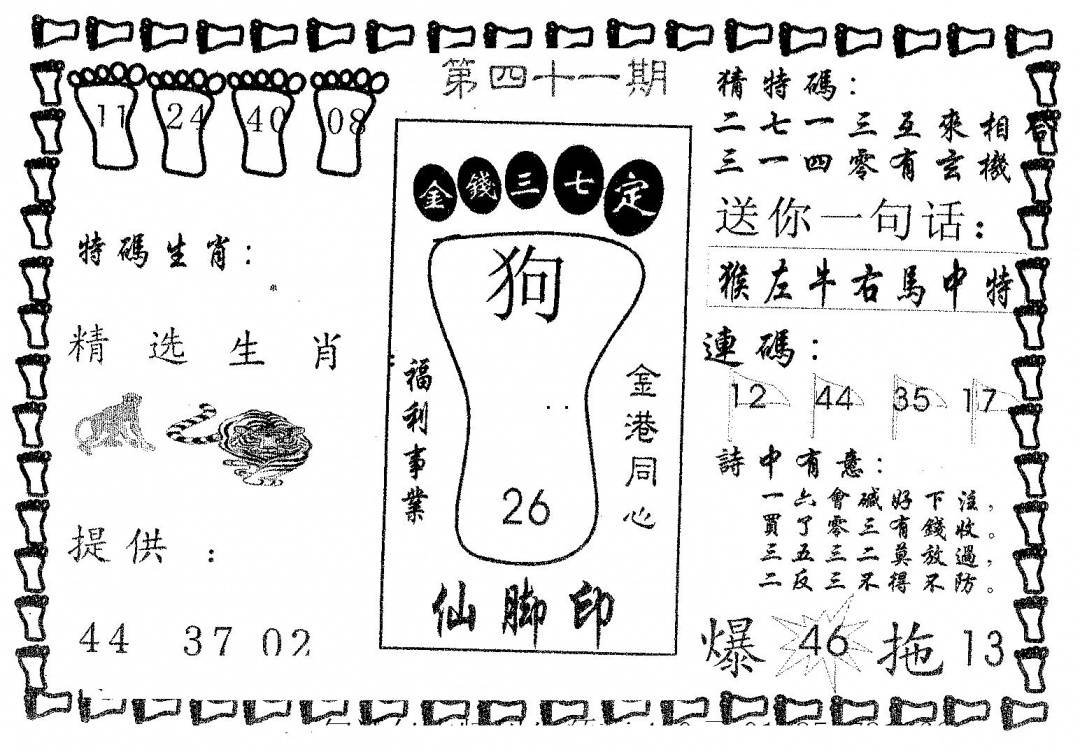 第四十一期
11 24 40 08
特碼生肖：
精选生肖：
提供：
44 37 02
金錢三七定
狗
福利事業
金港同心
26
仙脚印
猜特碼：
二七一三五來相合
三一四零有玄機
送你一句话：
猴左牛右馬中特
連碼：
12 44 35 17
詩中有意：
一六會碱好下注，
買了零三有錢收。
三五三二莫放過，
二反三不得不防。
爆 46 拖 13